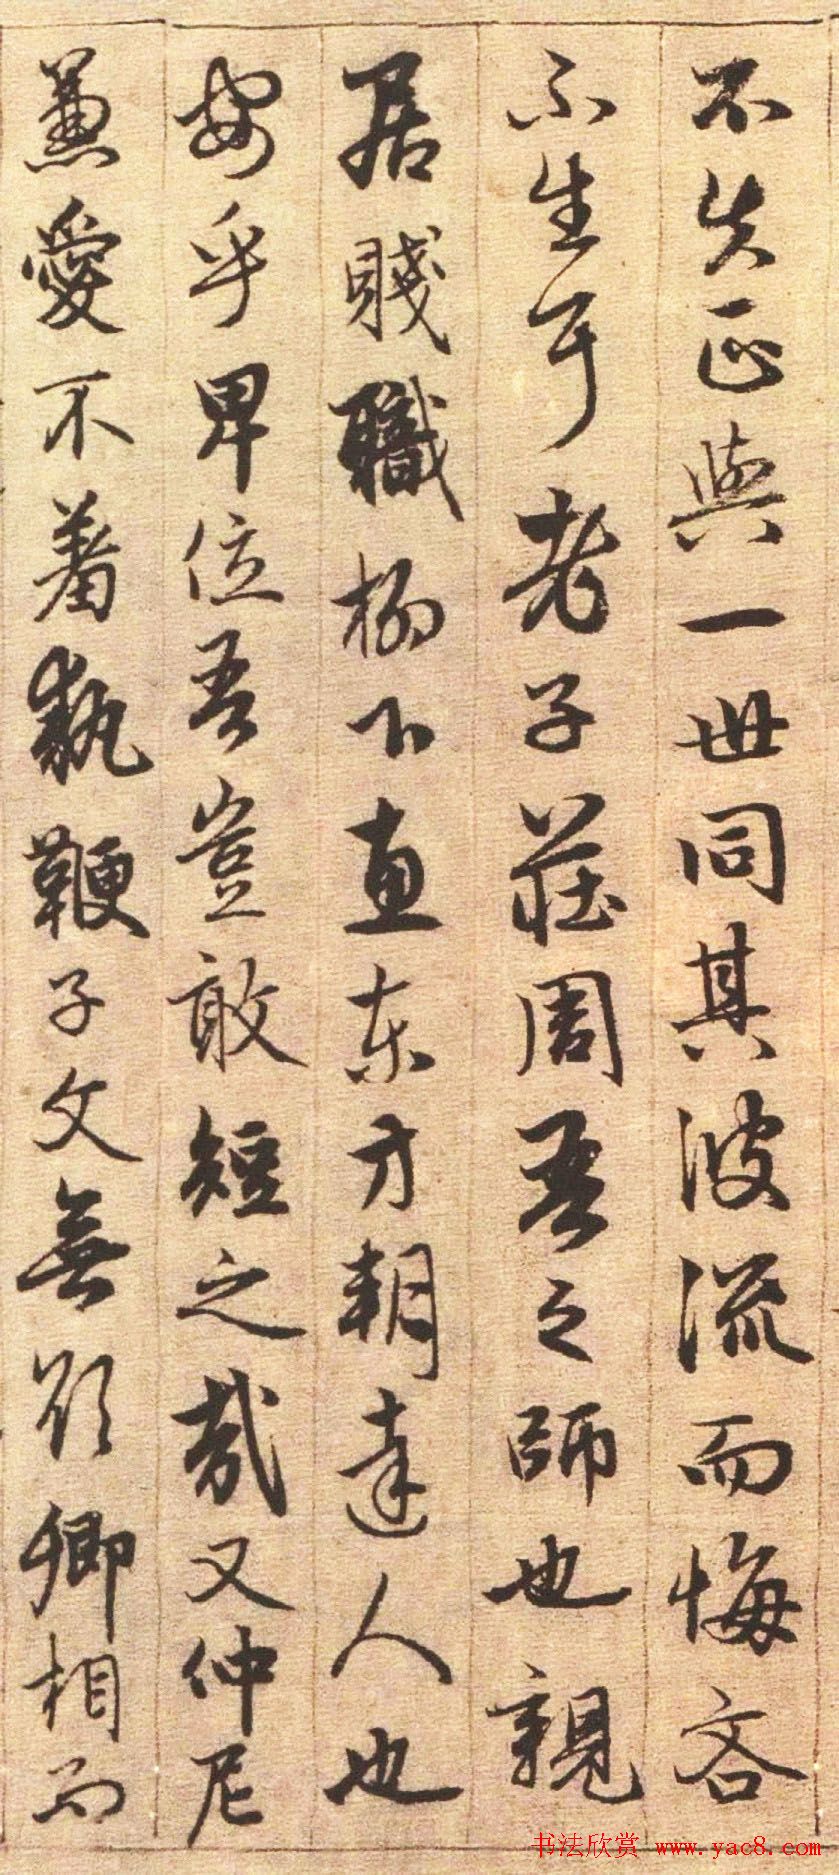 不失正與一世同其波流而悔吝
不生耳老子莊周吾之師也親
居賤職柳下惠東方朝達人也
安乎卑位吾豈敢短之哉又仲尼
兼愛不羞執鞭子文無欲卿相而
书法欣赏 www.yac8.com